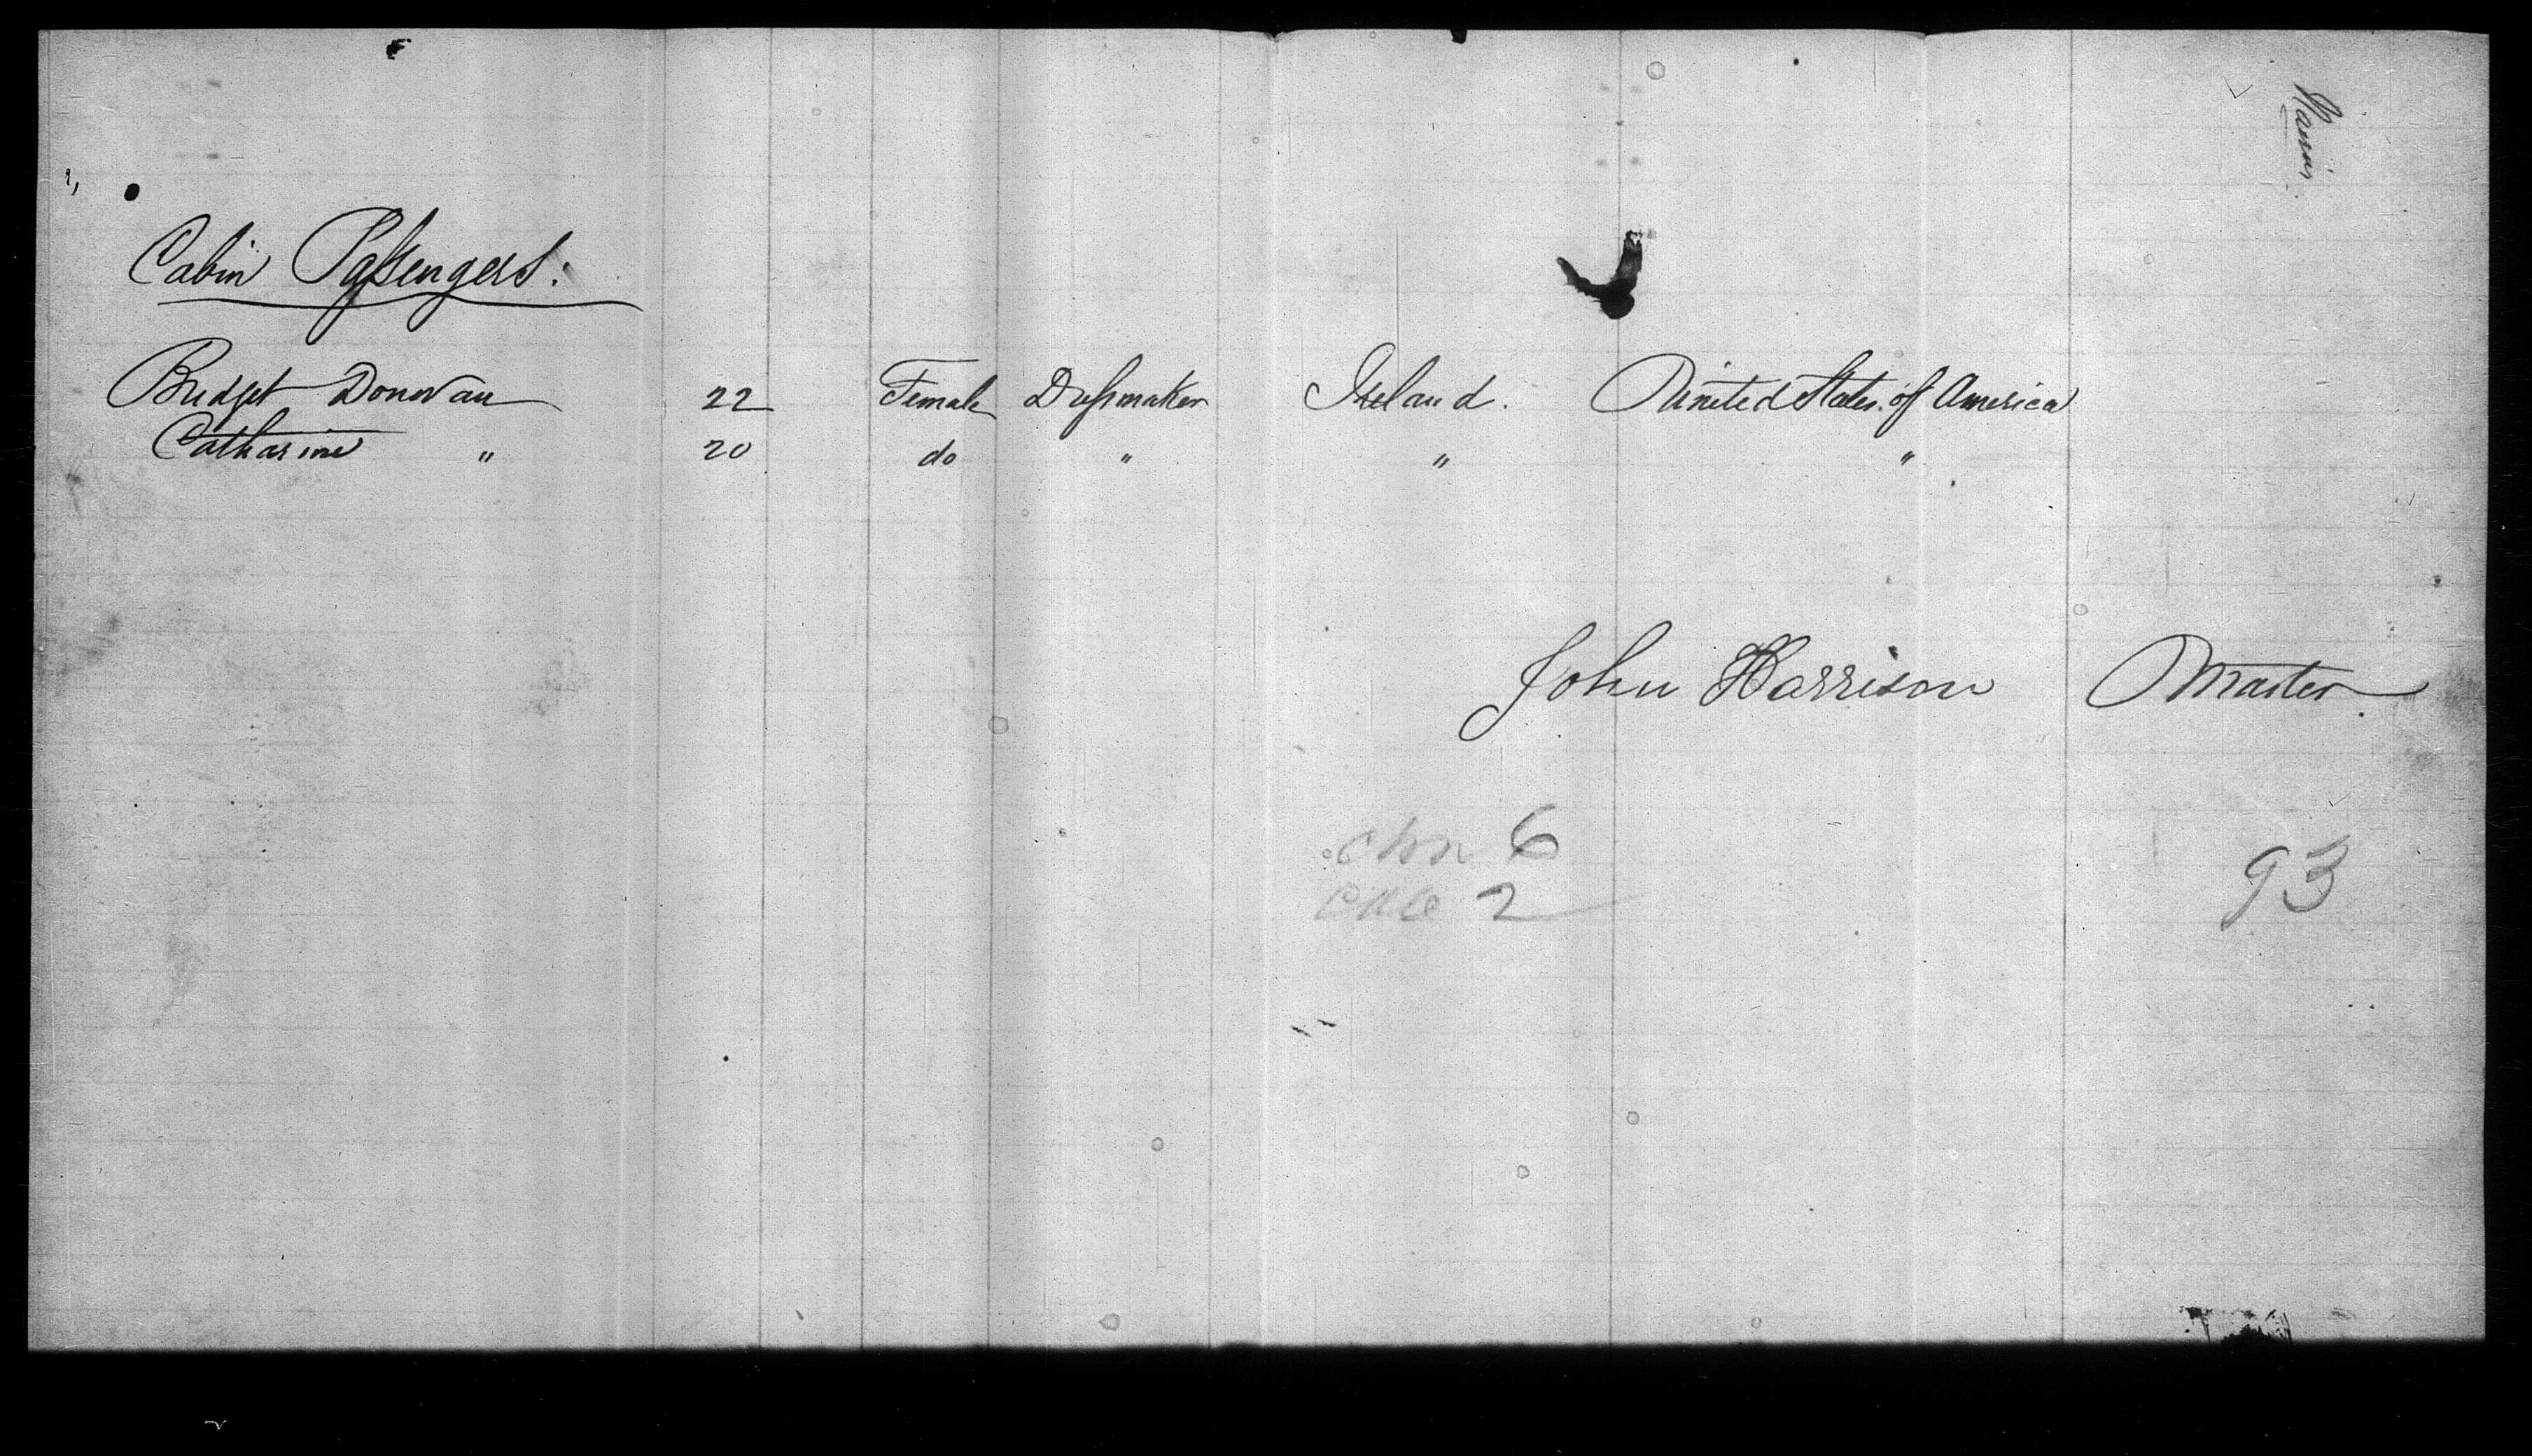 Cabin Passengers:
Bridget Donovan 22 Female Dressmaker Ireland. United States of America
Catharine " 20 do " " "
John Harrison Master
6
2
93